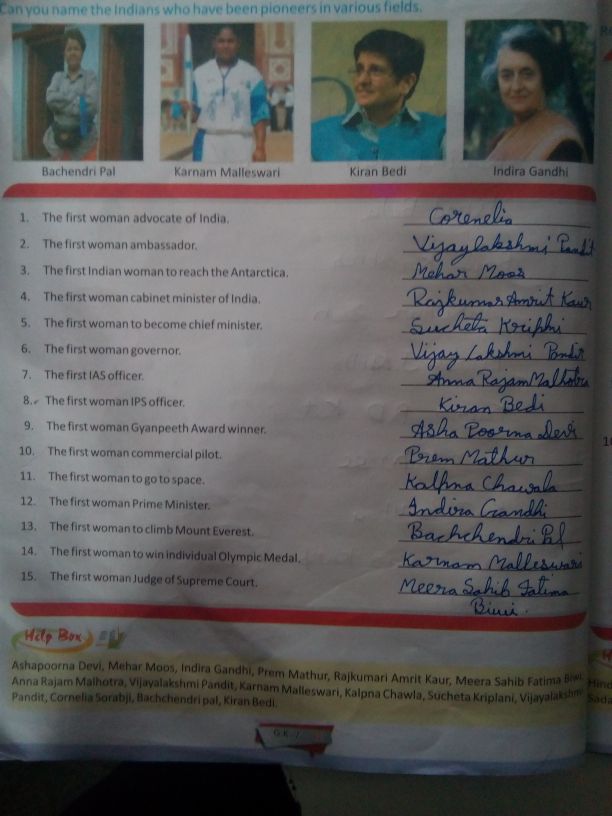 Can you name the Indians who have been pioneers in various fields.
Bachendri Pal
Karnam Malleswari
Kiran Bedi
Indira Gandhi
1. The first woman advocate of India. Corenelia
2. The first woman ambassador. Vijaylakshmi Pandit
3. The first Indian woman to reach the Antarctica. Mehar Moos
4. The first woman cabinet minister of India. Rajkumar Amrit Kaur
5. The first woman to become chief minister. Sucheta Kriplni
6. The first woman governor. Vijay Lakshmi Pandit
7. The first IAS officer. Anna Rajam Malhotra
8. The first woman IPS officer. Kiran Bedi
9. The first woman Gyanpeeth Award winner. Asha Poorna Devi
10. The first woman commercial pilot. Prem Mathur
11. The first woman to go to space. Kalpna Chawala
12. The first woman Prime Minister. Indira Gandhi
13. The first woman to climb Mount Everest. Bachchendri Pal
14. The first woman to win individual Olympic Medal. Karnam Malleswari
15. The first woman Judge of Supreme Court. Meera Sahib Fatima
Biwi.
Help Box
Ashapoorna Devi, Mehar Moos, Indira Gandhi, Prem Mathur, Rajkumari Amrit Kaur, Meera Sahib Fatima Biwi,
Anna Rajam Malhotra, Vijayalakshmi Pandit, Karnam Malleswari, Kalpna Chawla, Sucheta Kriplani, Vijayalakshmi
Pandit, Cornelia Sorabji, Bachchendri pal, Kiran Bedi.
G.K.-7